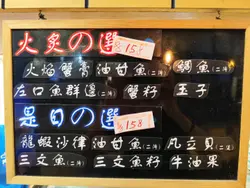 火炙の選 $15
火焰蟹膏油甘魚(二件) 鯛魚(二件)
左口魚群邊(二件) 蟹籽 玉子
是日の選 $158
龍蝦沙律油甘魚(二件) 凡立貝(二件)
三文魚(二件) 三文魚籽 牛油果